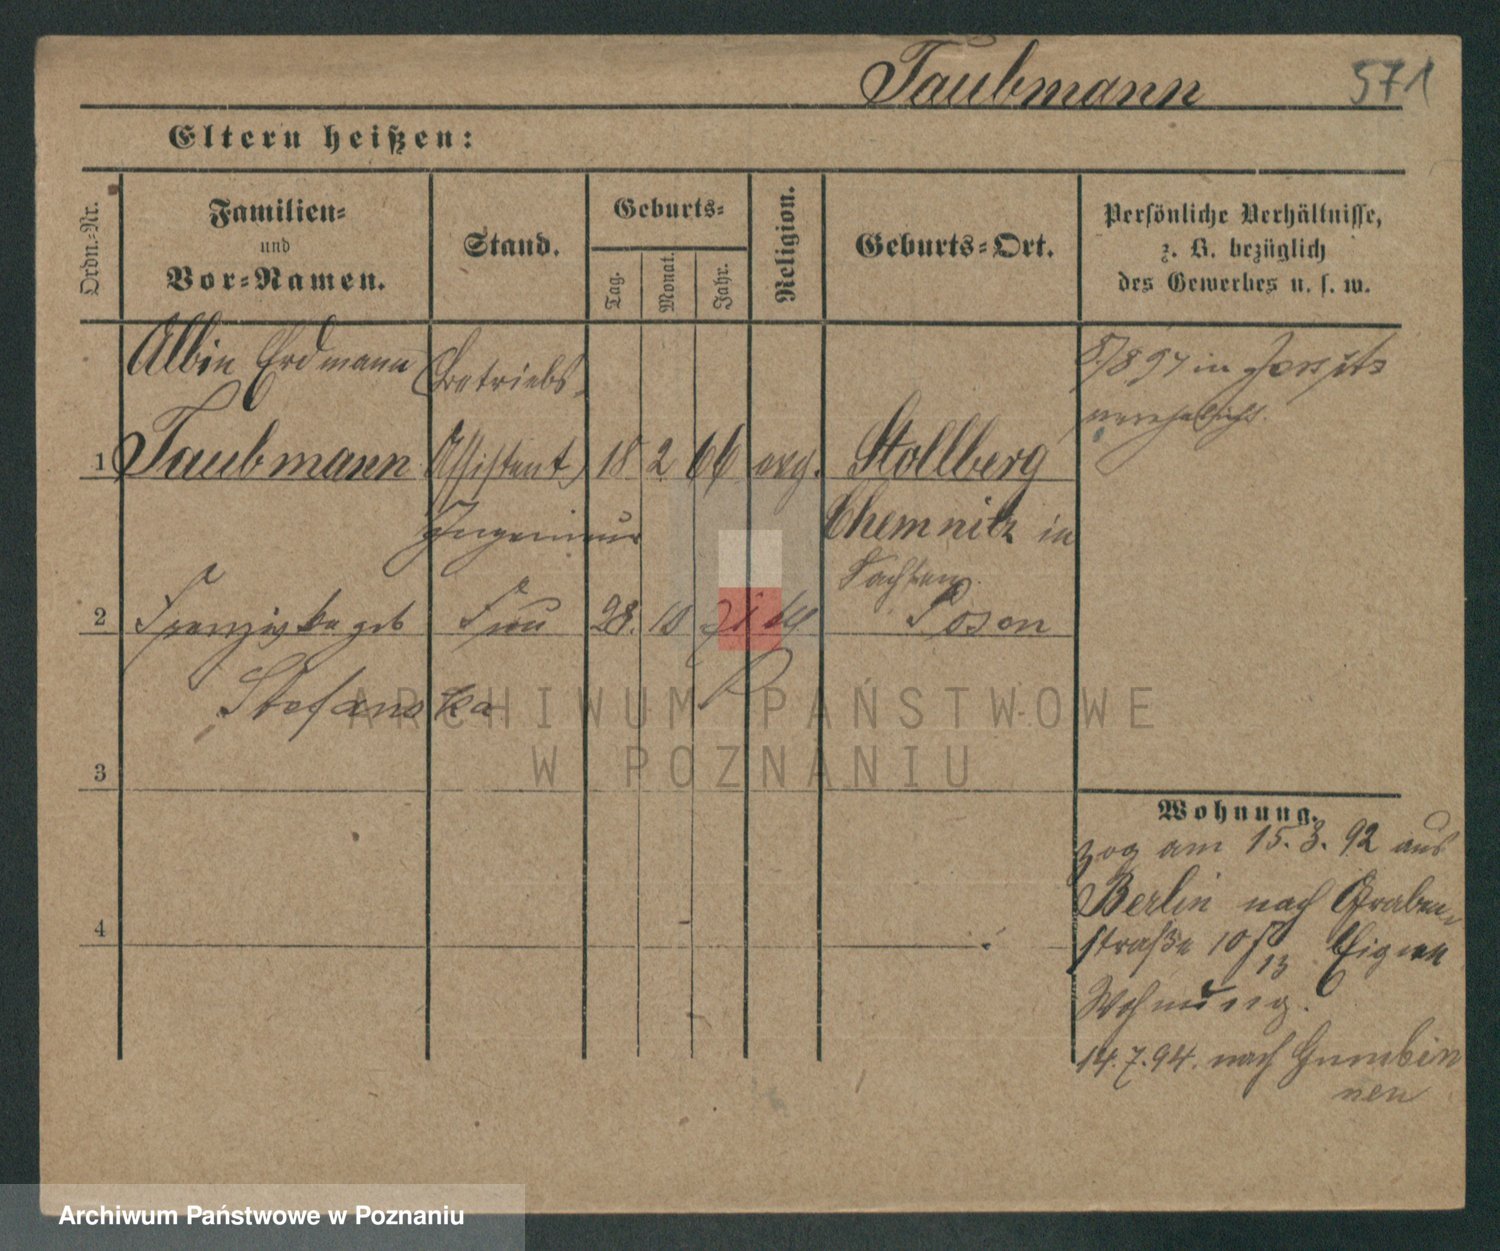 Taubmann 571
Eltern heißen:
Ordn.-Nr.
Familien-
und
Vor-Namen.
Stand.
Geburts-
Tag.
Monat.
Jahr.
Religion.
Geburts-Ort.
Persönliche Verhältnisse,
z. B. bezüglich
des Gewerbes u. s. w.
Albin Erdmann Betriebs-
1 Taubmann Assistent 18 2 66 evg. Stollberg
Ingenieur Chemnitz in
Sachsen
in
verehelicht.
2 Franziska geb Frau 28. 10 71 Posen
Stefanska
3
4
Wohnung.
zog am 15.3.92 aus
Berlin nach Graben-
straße 10 13 Eigene
Wohnung.
14.7.94. nach Gumbin
nen
ARCHIWUM PAŃSTWOWE
W POZNANIU
Archiwum Państwowe w Poznaniu